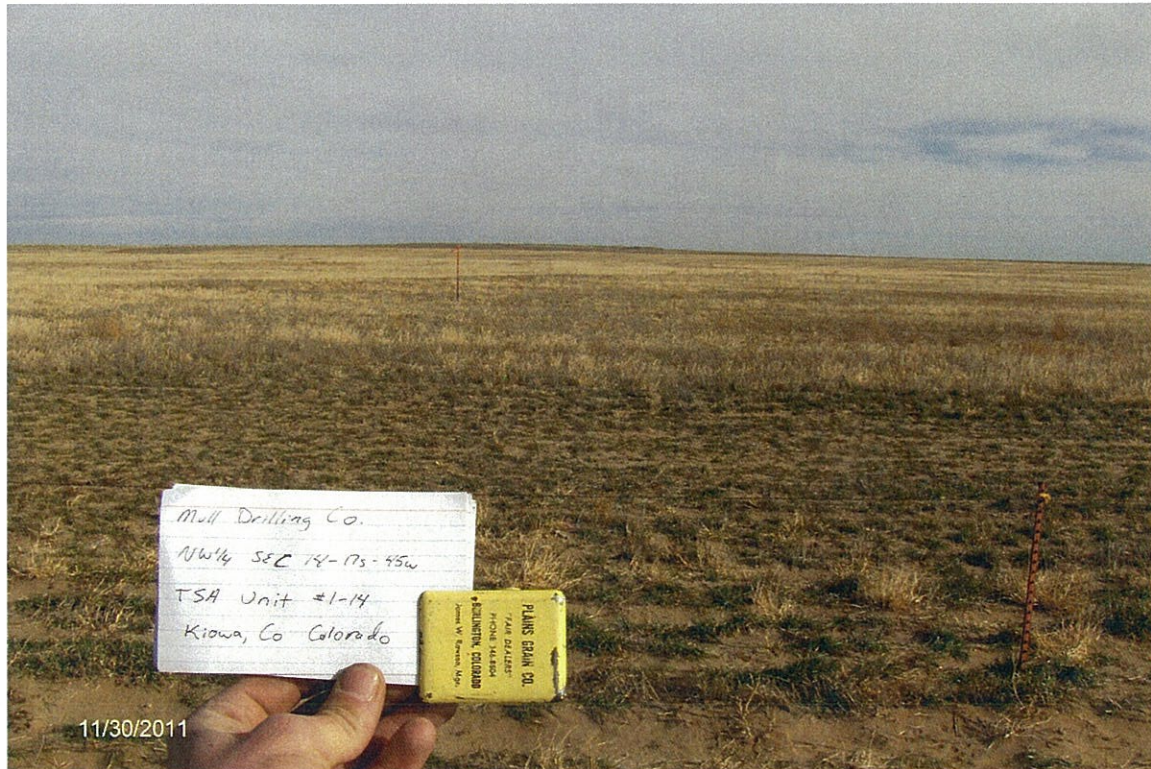 Mull Drilling Co.
NW 1/4 SEC 14-17s-45w
TSA Unit #1-14
Kiowa, Co Colorado
PLAINS GRAIN CO.
"FAIR DEALERS"
PHONE 346-8504
BURLINGTON, COLORADO
James W. Rowson, Mgr.
11/30/2011